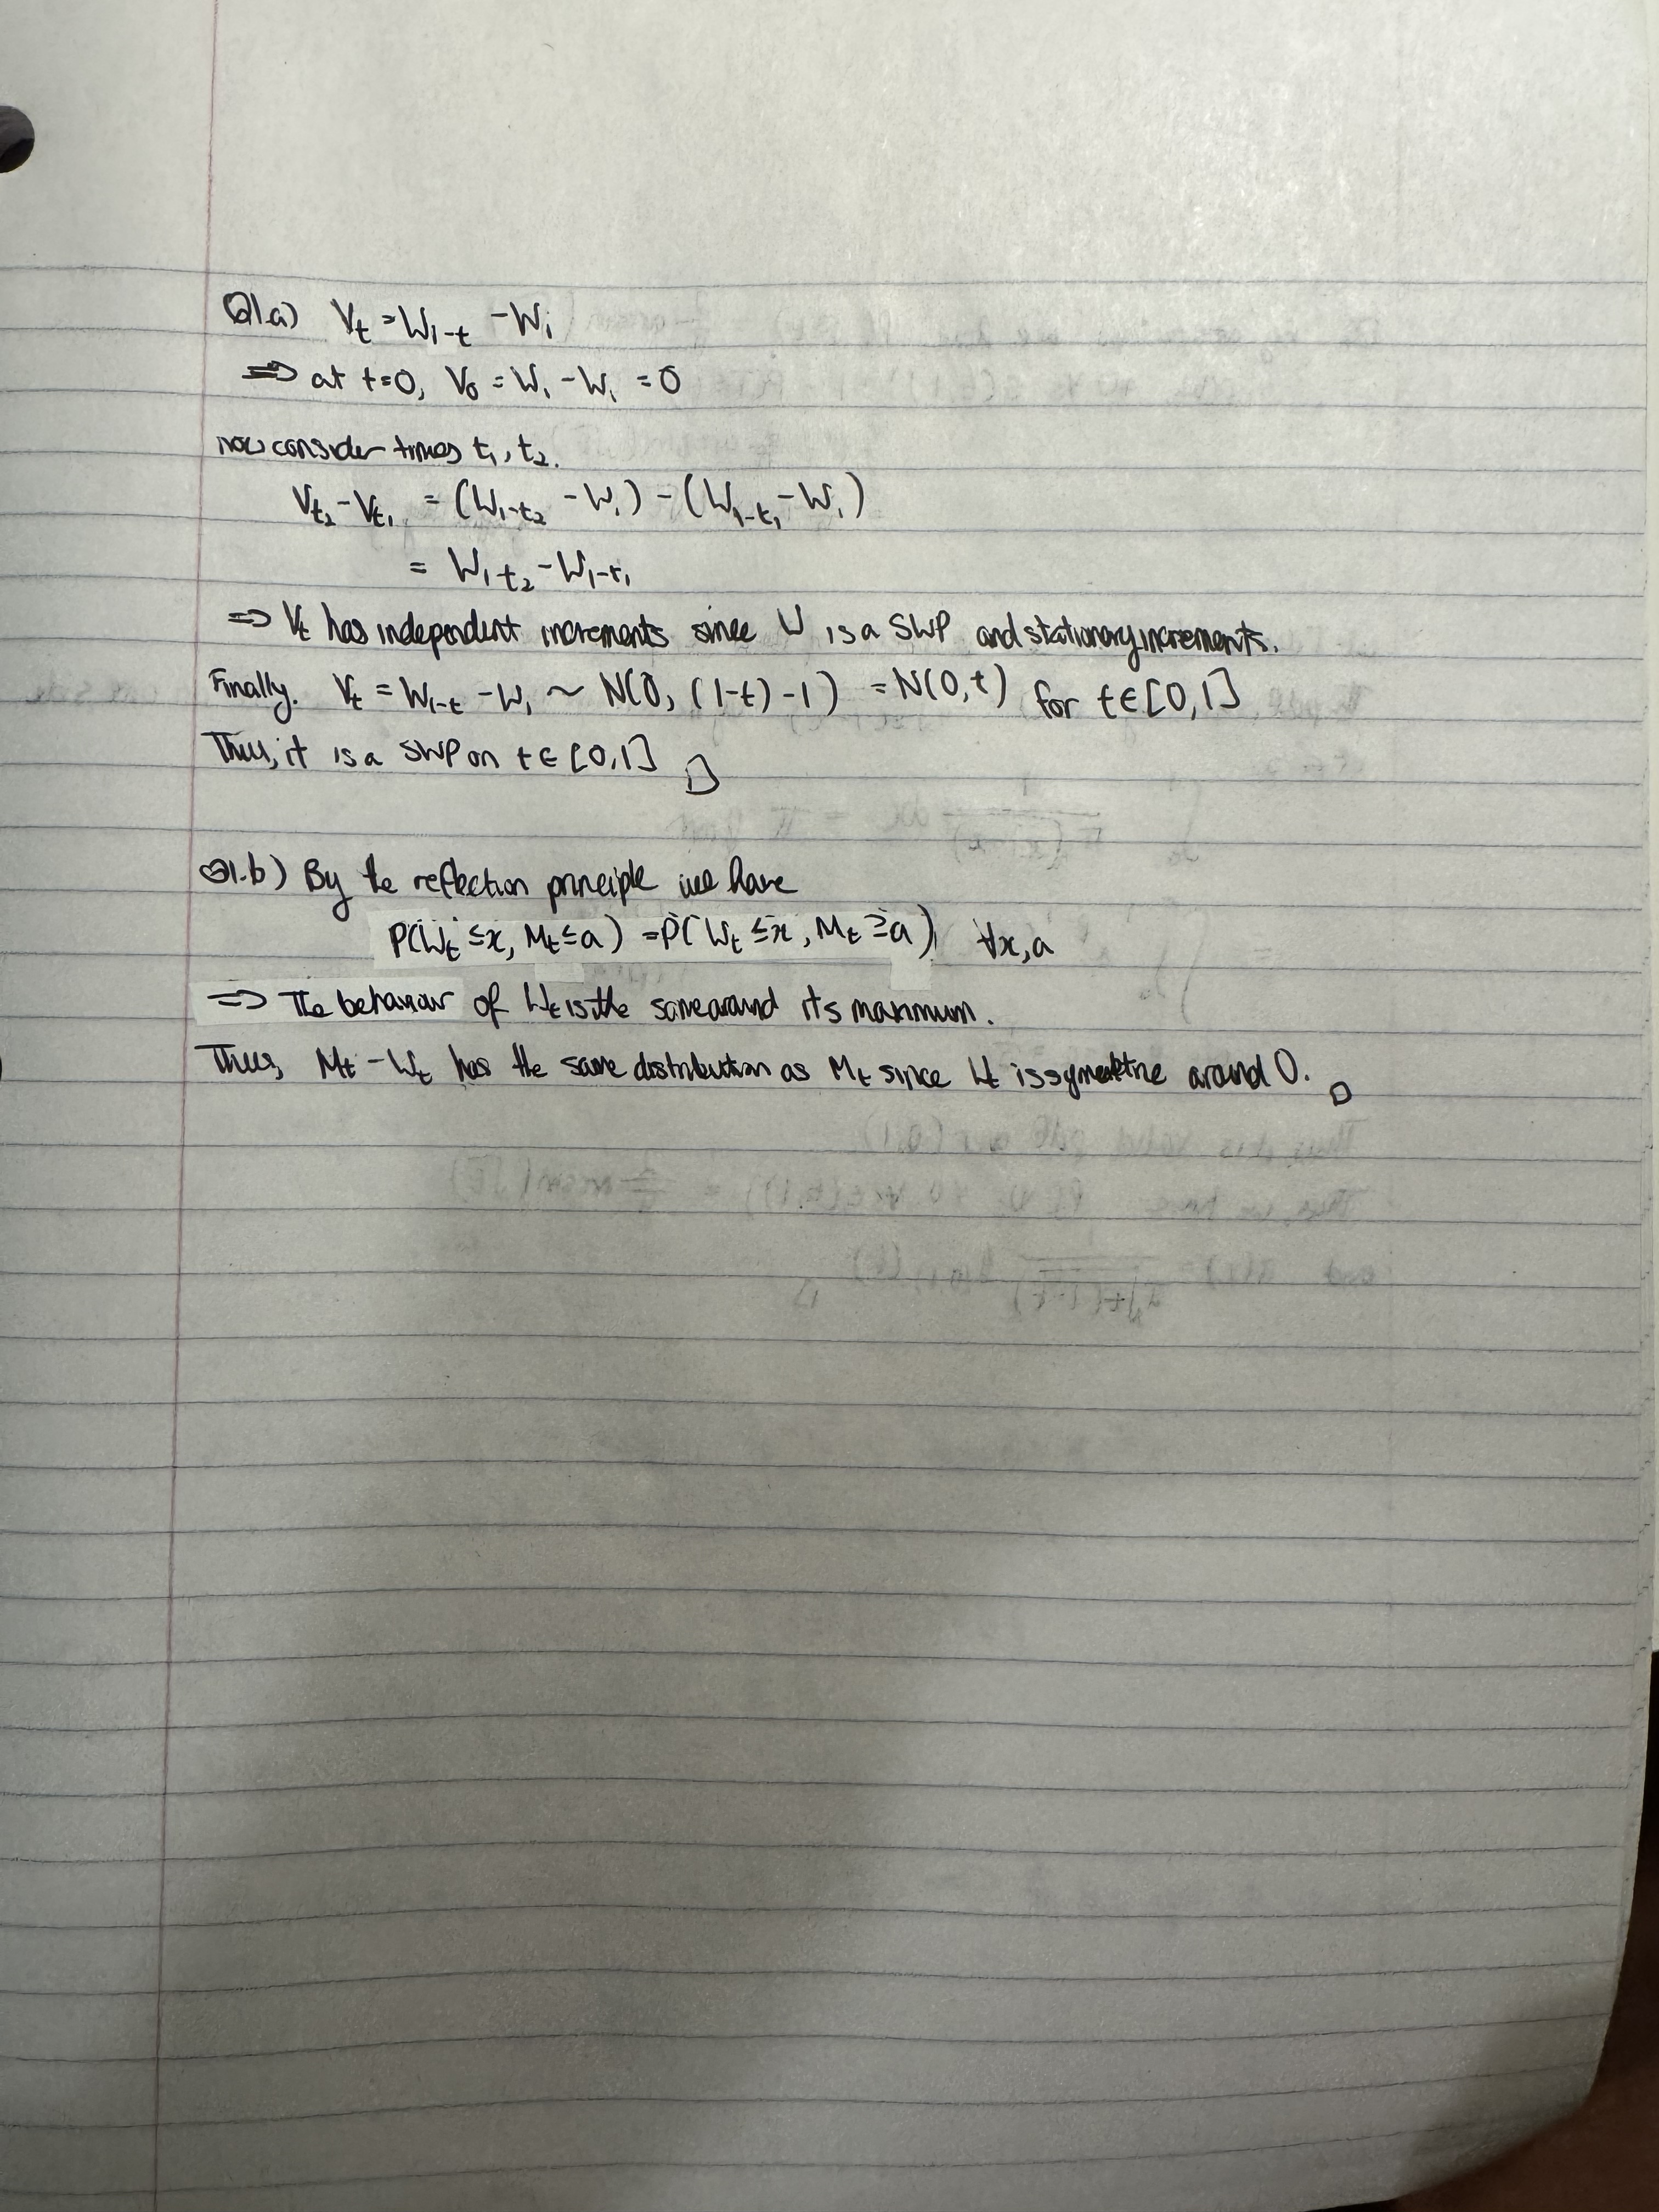 Q1.a) V_t = W_{1-t} - W_1
⇒ at t=0, V_0 = W_1 - W_1 = 0
now consider times t_1, t_2.
V_{t_2} - V_{t_1} = (W_{1-t_2} - W_1) - (W_{1-t_1} - W_1)
= W_{1-t_2} - W_{1-t_1}
⇒ V_t has independent increments since W is a SWP and stationary increments.
Finally. V_t = W_{1-t} - W_1 ~ N(0, (1-t)-1) = N(0,t) for t∈[0,1]
Thus, it is a SWP on t∈[0,1] □
Q1.b) By the reflection principle we have
P(W_t ≤ x, M_t ≤ a) = P(W_t ≤ x, M_t ≥ a) ∀x,a
⇒ The behaviour of W_t is the same around its maximum.
Thus, M_t - W_t has the same distribution as M_t since W_t is symmetric around 0. □